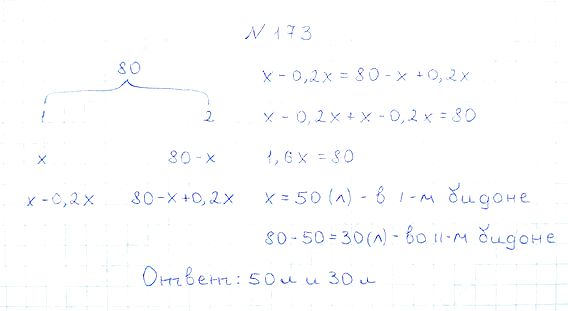 N 173
80
1 2
x 80-x
x-0,2x 80-x+0,2x
x-0,2x=80-x+0,2x
x-0,2x+x-0,2x=80
1,6x=80
x=50(л)-в I-м бидоне
80-50=30(л)-во II-м бидоне
Ответ: 50л и 30л